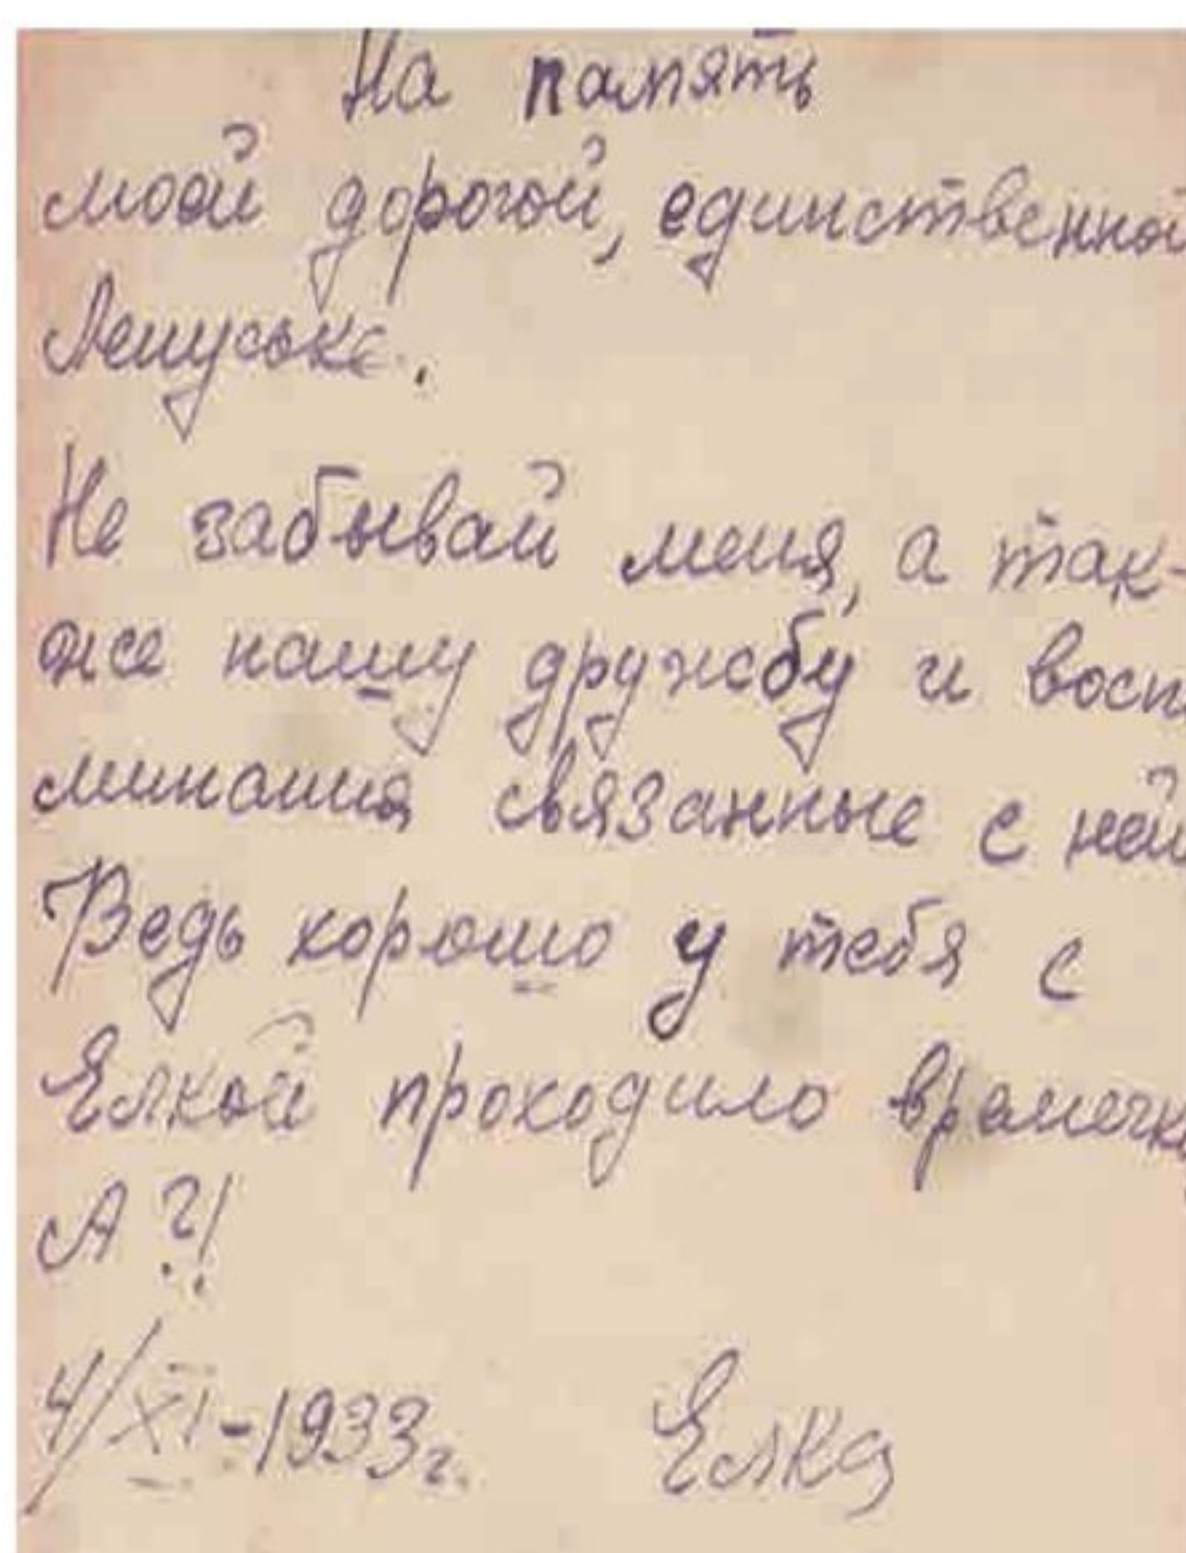 На память
моей дорогой, единственной
Ленуське.
Не забывай меня, а так-
же нашу дружбу и восп
минания связанные с ней
Ведь хорошо у тебя с
Елкой проходило времечко
А?!
4/XI-1933г. Елка